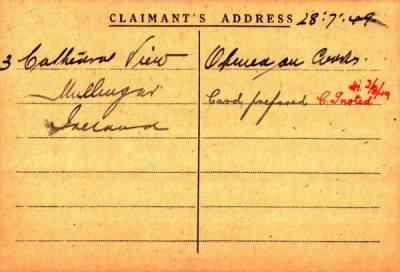 CLAIMANT'S ADDRESS 28·7·49
3 Cathedral View
Mullingar
Ireland
Opened on Cards.
Card prepared C.T noted 3/8/49